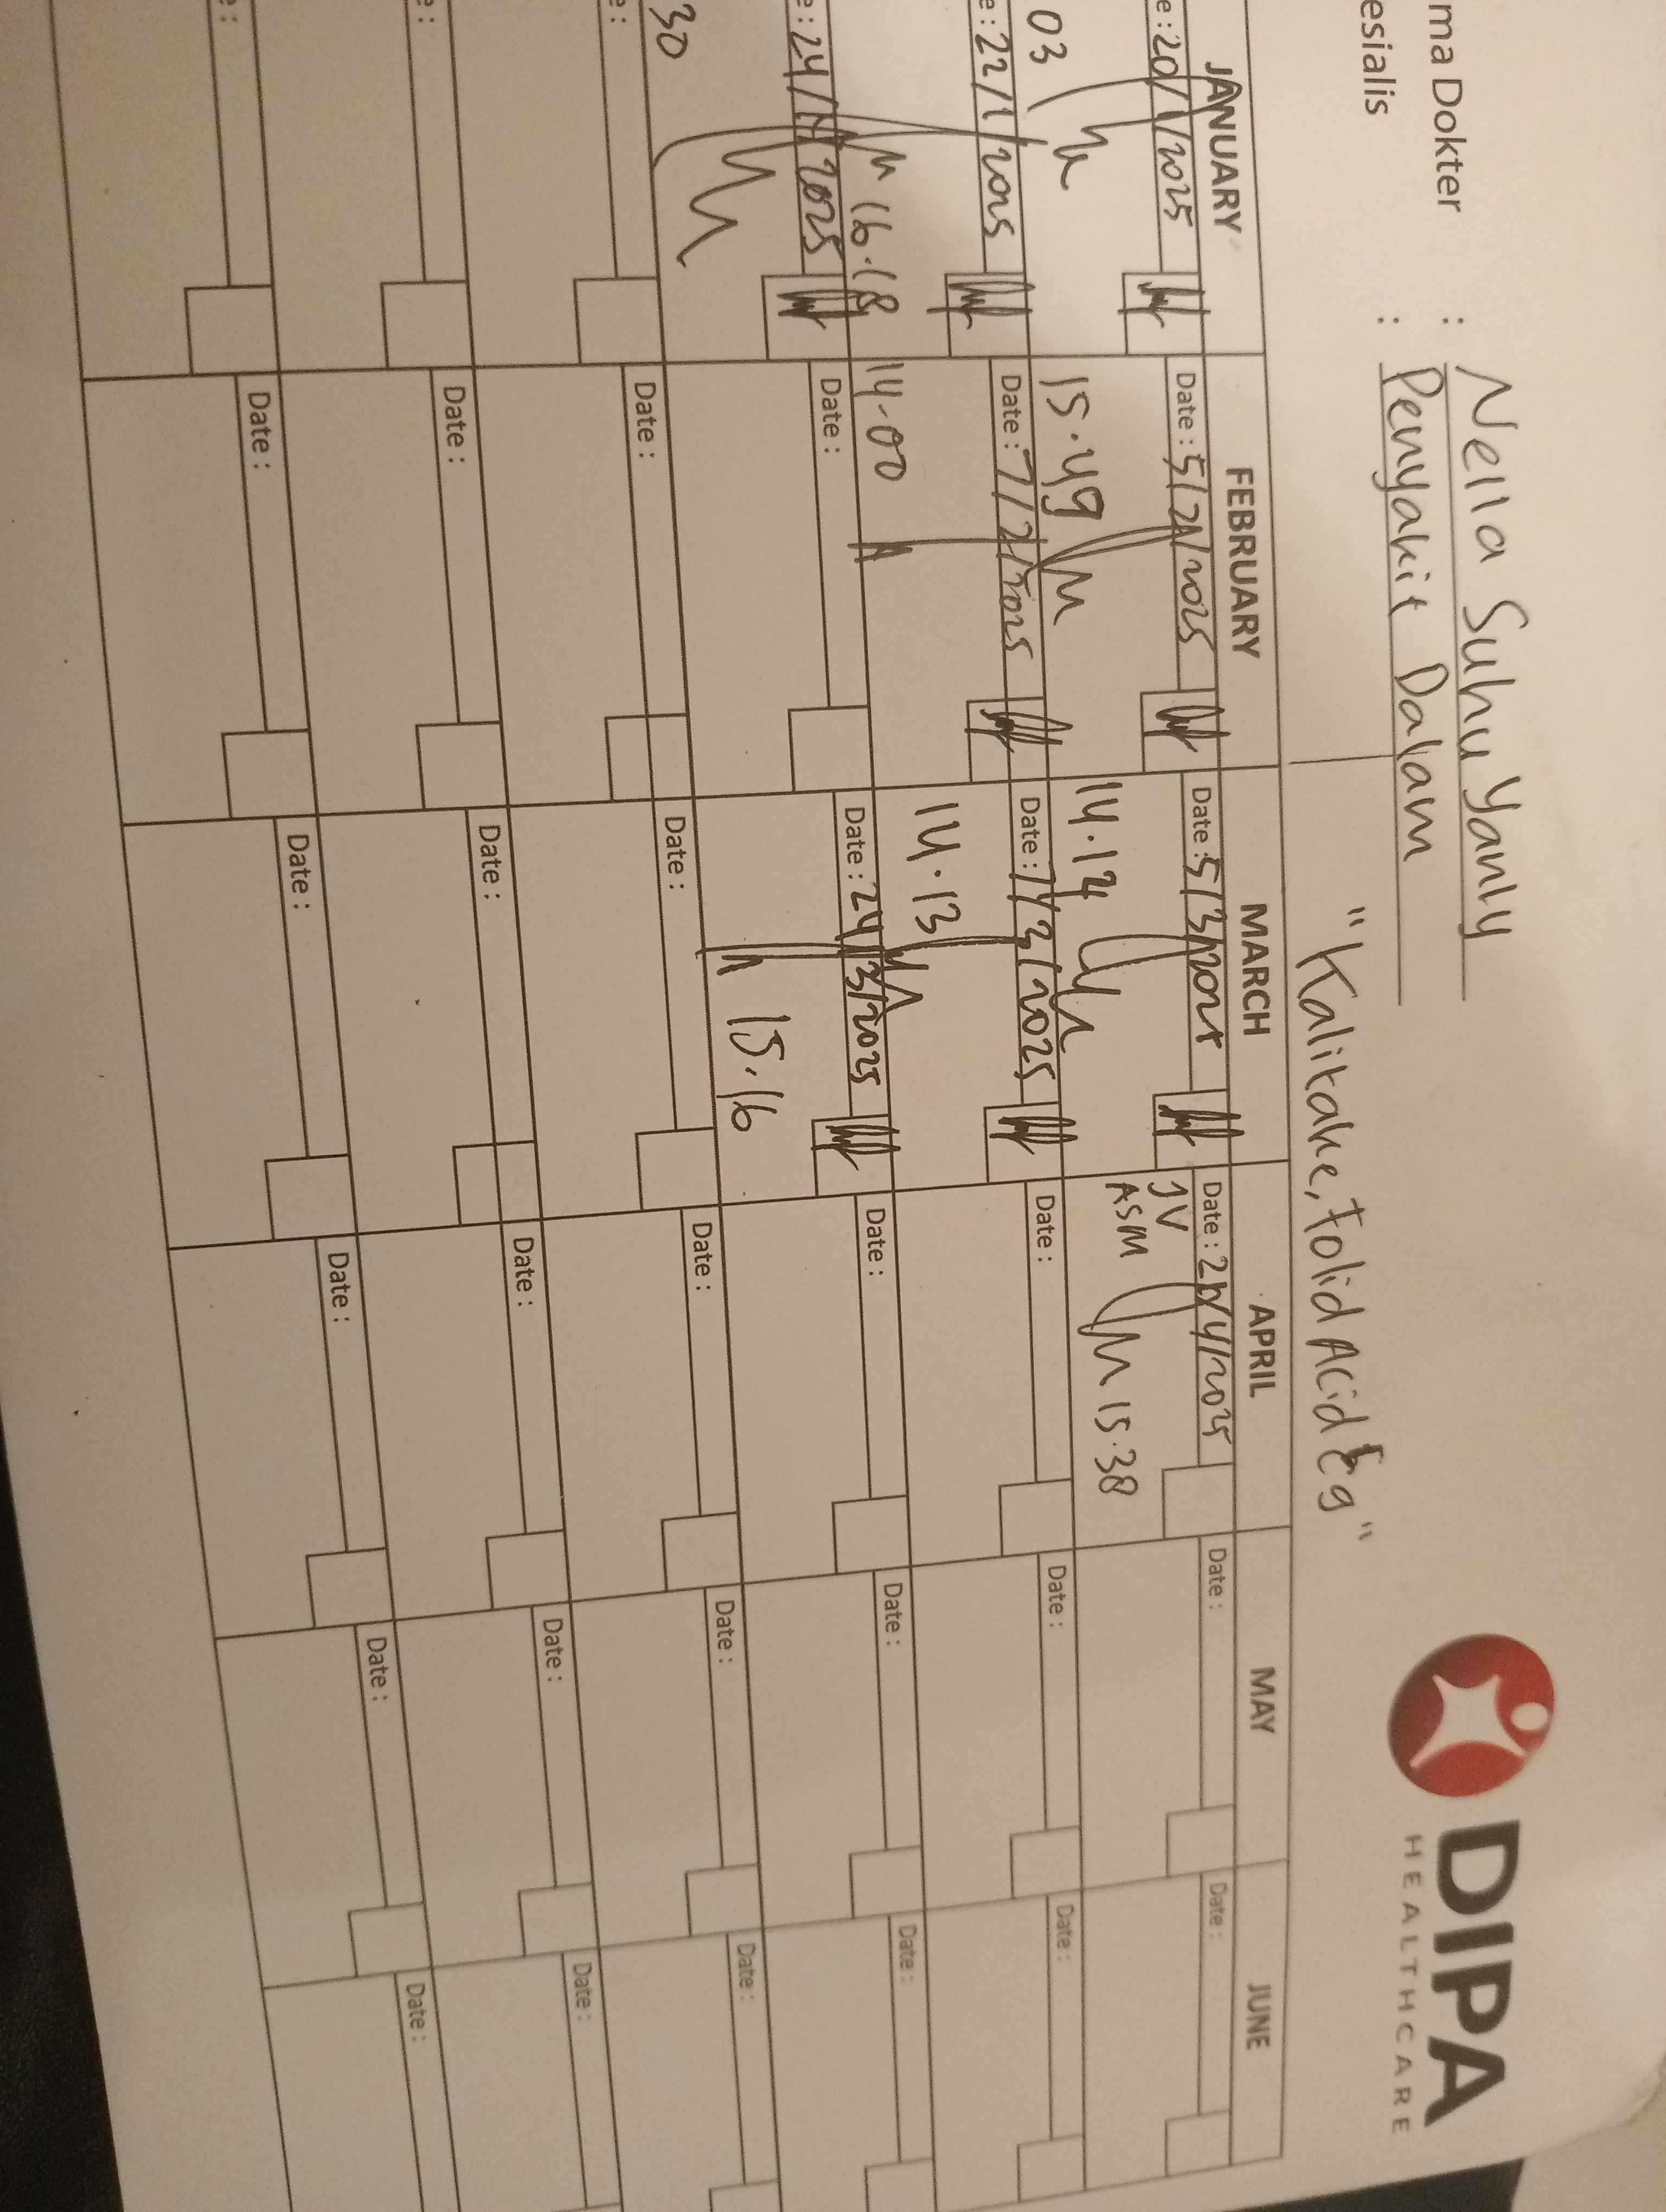 ma Dokter : Nella Suhu Yanly
esialis : Penyakit Dalam
"Kalitake, Folid Acid Eg"
DIPA
HEALTHCARE
JANUARY FEBRUARY MARCH APRIL MAY JUNE
e : 20/1/2025 Date : 5/2/2025 Date : 5/3/2025 Date : /4/2025 Date : Date :
03 15.49 14.12 JV ASM 15.38
e : 22/1/2025 Date : 7/2/2025 Date : 7/3/2025 Date : Date : Date :
16.18 14.00 14.13
e : 24/1/2025 Date : Date : 24/3/2025 Date : Date : Date :
30 15.16
e : Date : Date : Date : Date : Date :
e : Date : Date : Date : Date : Date :
e : Date : Date : Date : Date : Date :